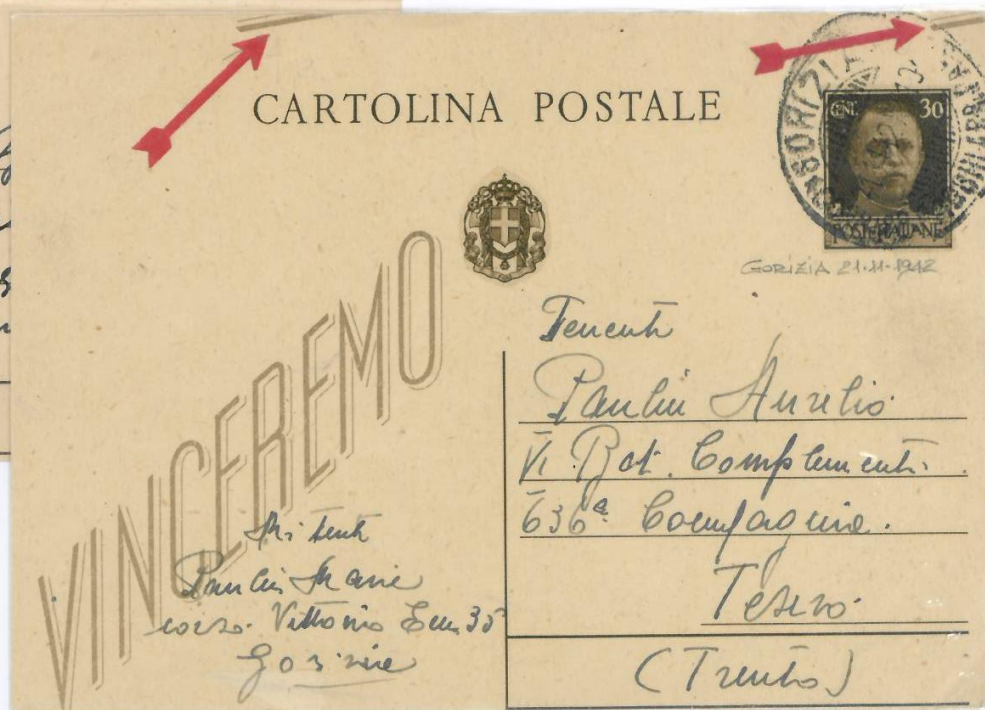 CARTOLINA POSTALE
CENT. 30
POSTE ITALIANE
GORIZIA
GORIZIA 21-11-1942
VINCEREMO
Tenente
Paulin Aurelio
VI. Bat. Complementi.
636ª Compagnia.
Tesero.
(Trento)
Mittente
Paulin Maria
corso Vittorio Em. 35
Gorizia